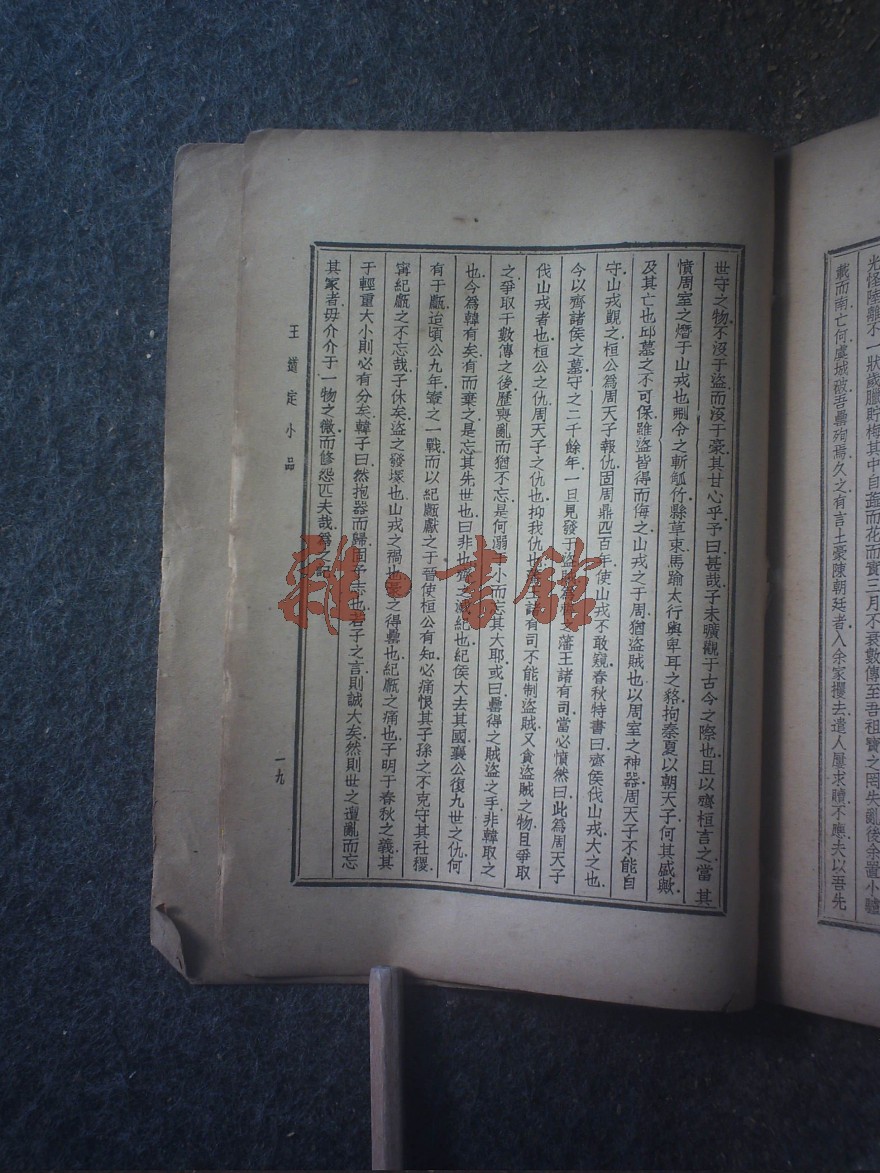 光怪陸離不一狀歲臘貯梅其中自蓓而花而實三月不衰數傳至吾祖寶之罔失亂後余置小艫
載而南亡何虞城破吾罍殉焉久之有言土豪陳朝廷者入余家攫去遣人屢求贖不應夫以吾先
世守之物不沒于盜而沒于豪其甘心乎予曰甚哉子未曠觀于古今之際也且以齊桓言之當其
憤周室之憯于山戎也刜令之斬觚竹縣草束馬踰太行與卑耳之谿拘秦夏以朝天子何其盛歟
及其亡也邱墓之不可保雖盜皆得而侮之山戎之于周猶盜賊也以周室之神器周天子不能自
守山戎覬之桓公為周天子報仇固周鼎四百年使山戎不敢窺春秋特書曰齊侯伐山戎大之也
今以齊諸侯之墓守之二千餘年一旦見發于盜賊為之藩王諸有司當必憤然曰此為周天子
伐山戎者也桓公之仇周天子之仇也抑我仇也王諸有司不能制盜賊又貪盜賊之物且爭取
之爭取千數傳之後歷喪亂而猶不忘是何溺小而忘其大耶或曰罍得之賊盜之手非韓取之
也今為韓有矣有而棄之是忘其先世也曰非也齊之滅紀也紀侯大去其國襄公復九世之仇何
有于甗迨頃公九年鞌之一戰而以紀甗獻之于晉使桓公有知必痛恨其子孫之不克守其社稷
寧紀甗之不忘哉子休矣盜之發塚也山戎之禍也豪之得罍也紀甗之痛也子明于春秋之義其
于輕重大小則必有分矣韓子曰然抱器而歸固予志也若子之言則誠大矣然則世之遭亂而忘
其家者毋介介于一物之微而修怨匹夫哉為之記
王道定小品
一九
雜·書館